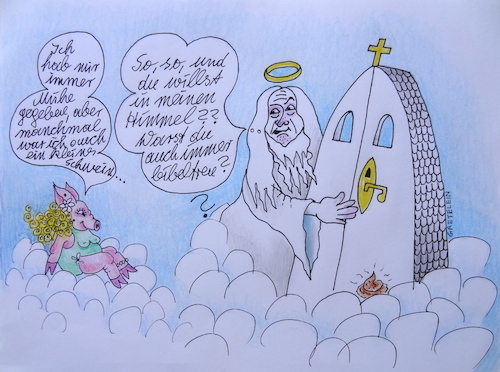 Ich
hab nur
immer
Mühe
gegeben, aber
manchmal
war ich auch
ein kleines
Schwein...
So, so, und
du willst
in meinen
Himmel??
Warst du
auch immer
bibeltreu?
?